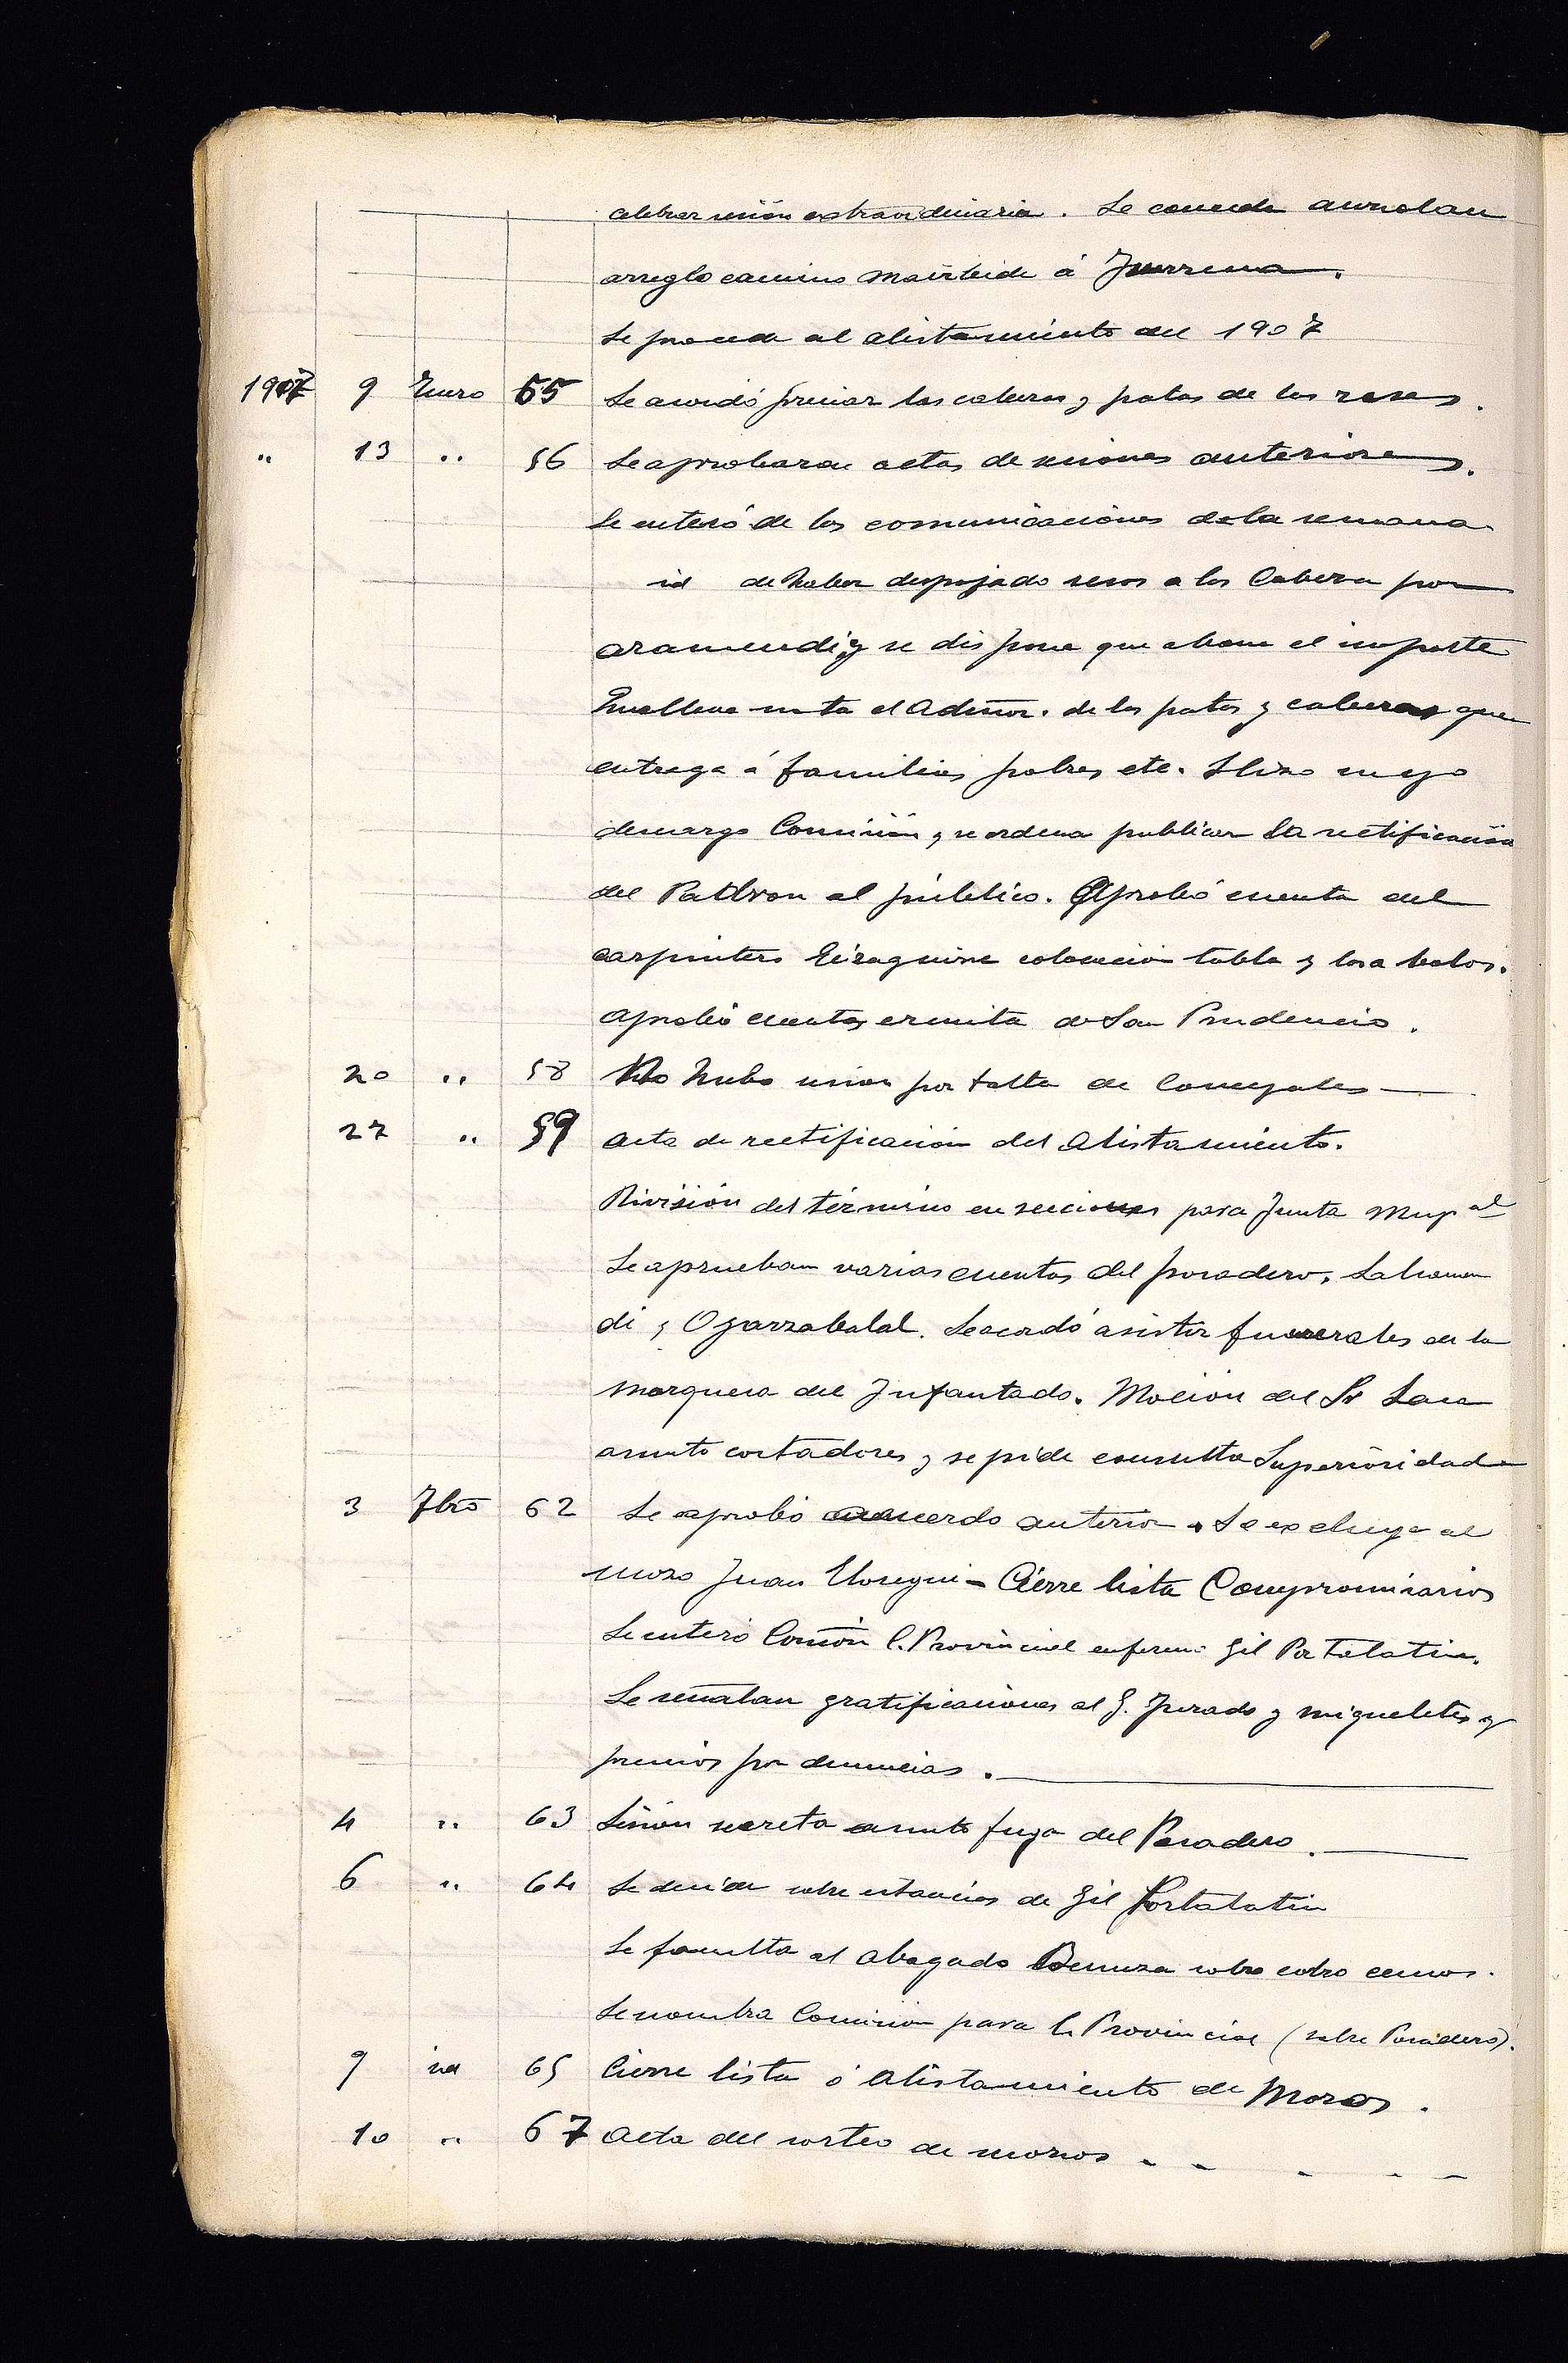 celebrar sesión extraordinaria. Se concede
arreglo caminos á
Se procede al alistamiento del 1907
1907 9 Enero 55 Se acordó preciar las cabezas y patas de las reses.
" 13 " 56 Se aprobaron actas de sesiones anteriores.
Se enteró de las comunicaciones de la semana
id de haber despojado sesos a las Cabezas por
Aramendi y se dispone que abone el importe
Que lleve nota el Admor. de las patas y cabezas que
entrega á familias pobres etc. Hizo
descargo Comisión y se ordena publicar la rectificación
del Padron al público. Aprobó cuenta del
carpintero Eizaguirre colocación tabla y
Aprobó cuentas ermita de San Prudencio.
20 " 58 No hubo sesion por falta de Concejales
27 " 59 Acta de rectificación del Alistamiento.
División del término en secciones para Junta Mupal
Se aprueban varias cuentas del posadero,
di y Oyarzabalal. Se acordó asistir funerales de la
Marquesa del Infantado. Moción del Sr
asunto cortadores y se pide consulta Superioridad
3 7bro 62 Se aprobó acuerdo anterior. Se excluye al
mozo Juan Elosegui - Cierre lista Compromisarios
Se enteró Comón C. Provincial enfermo Gil Portalatin.
Se señalan gratificaciones al G. Jurado y migueletes y
premios por denuncias.
4 " 63 Sesion secreta asunto fuga del Posadero.
6 " 64 Se decide sobre estancias de Gil Portalatin
Se faculta al abogado sobre cobro censos.
Se nombra Comision para C. Provincial (sobre Posadero).
9 id 65 Cierre lista ó Alistamiento de Mozos.
10 " 67 Acta del sorteo de mozos - - - - -